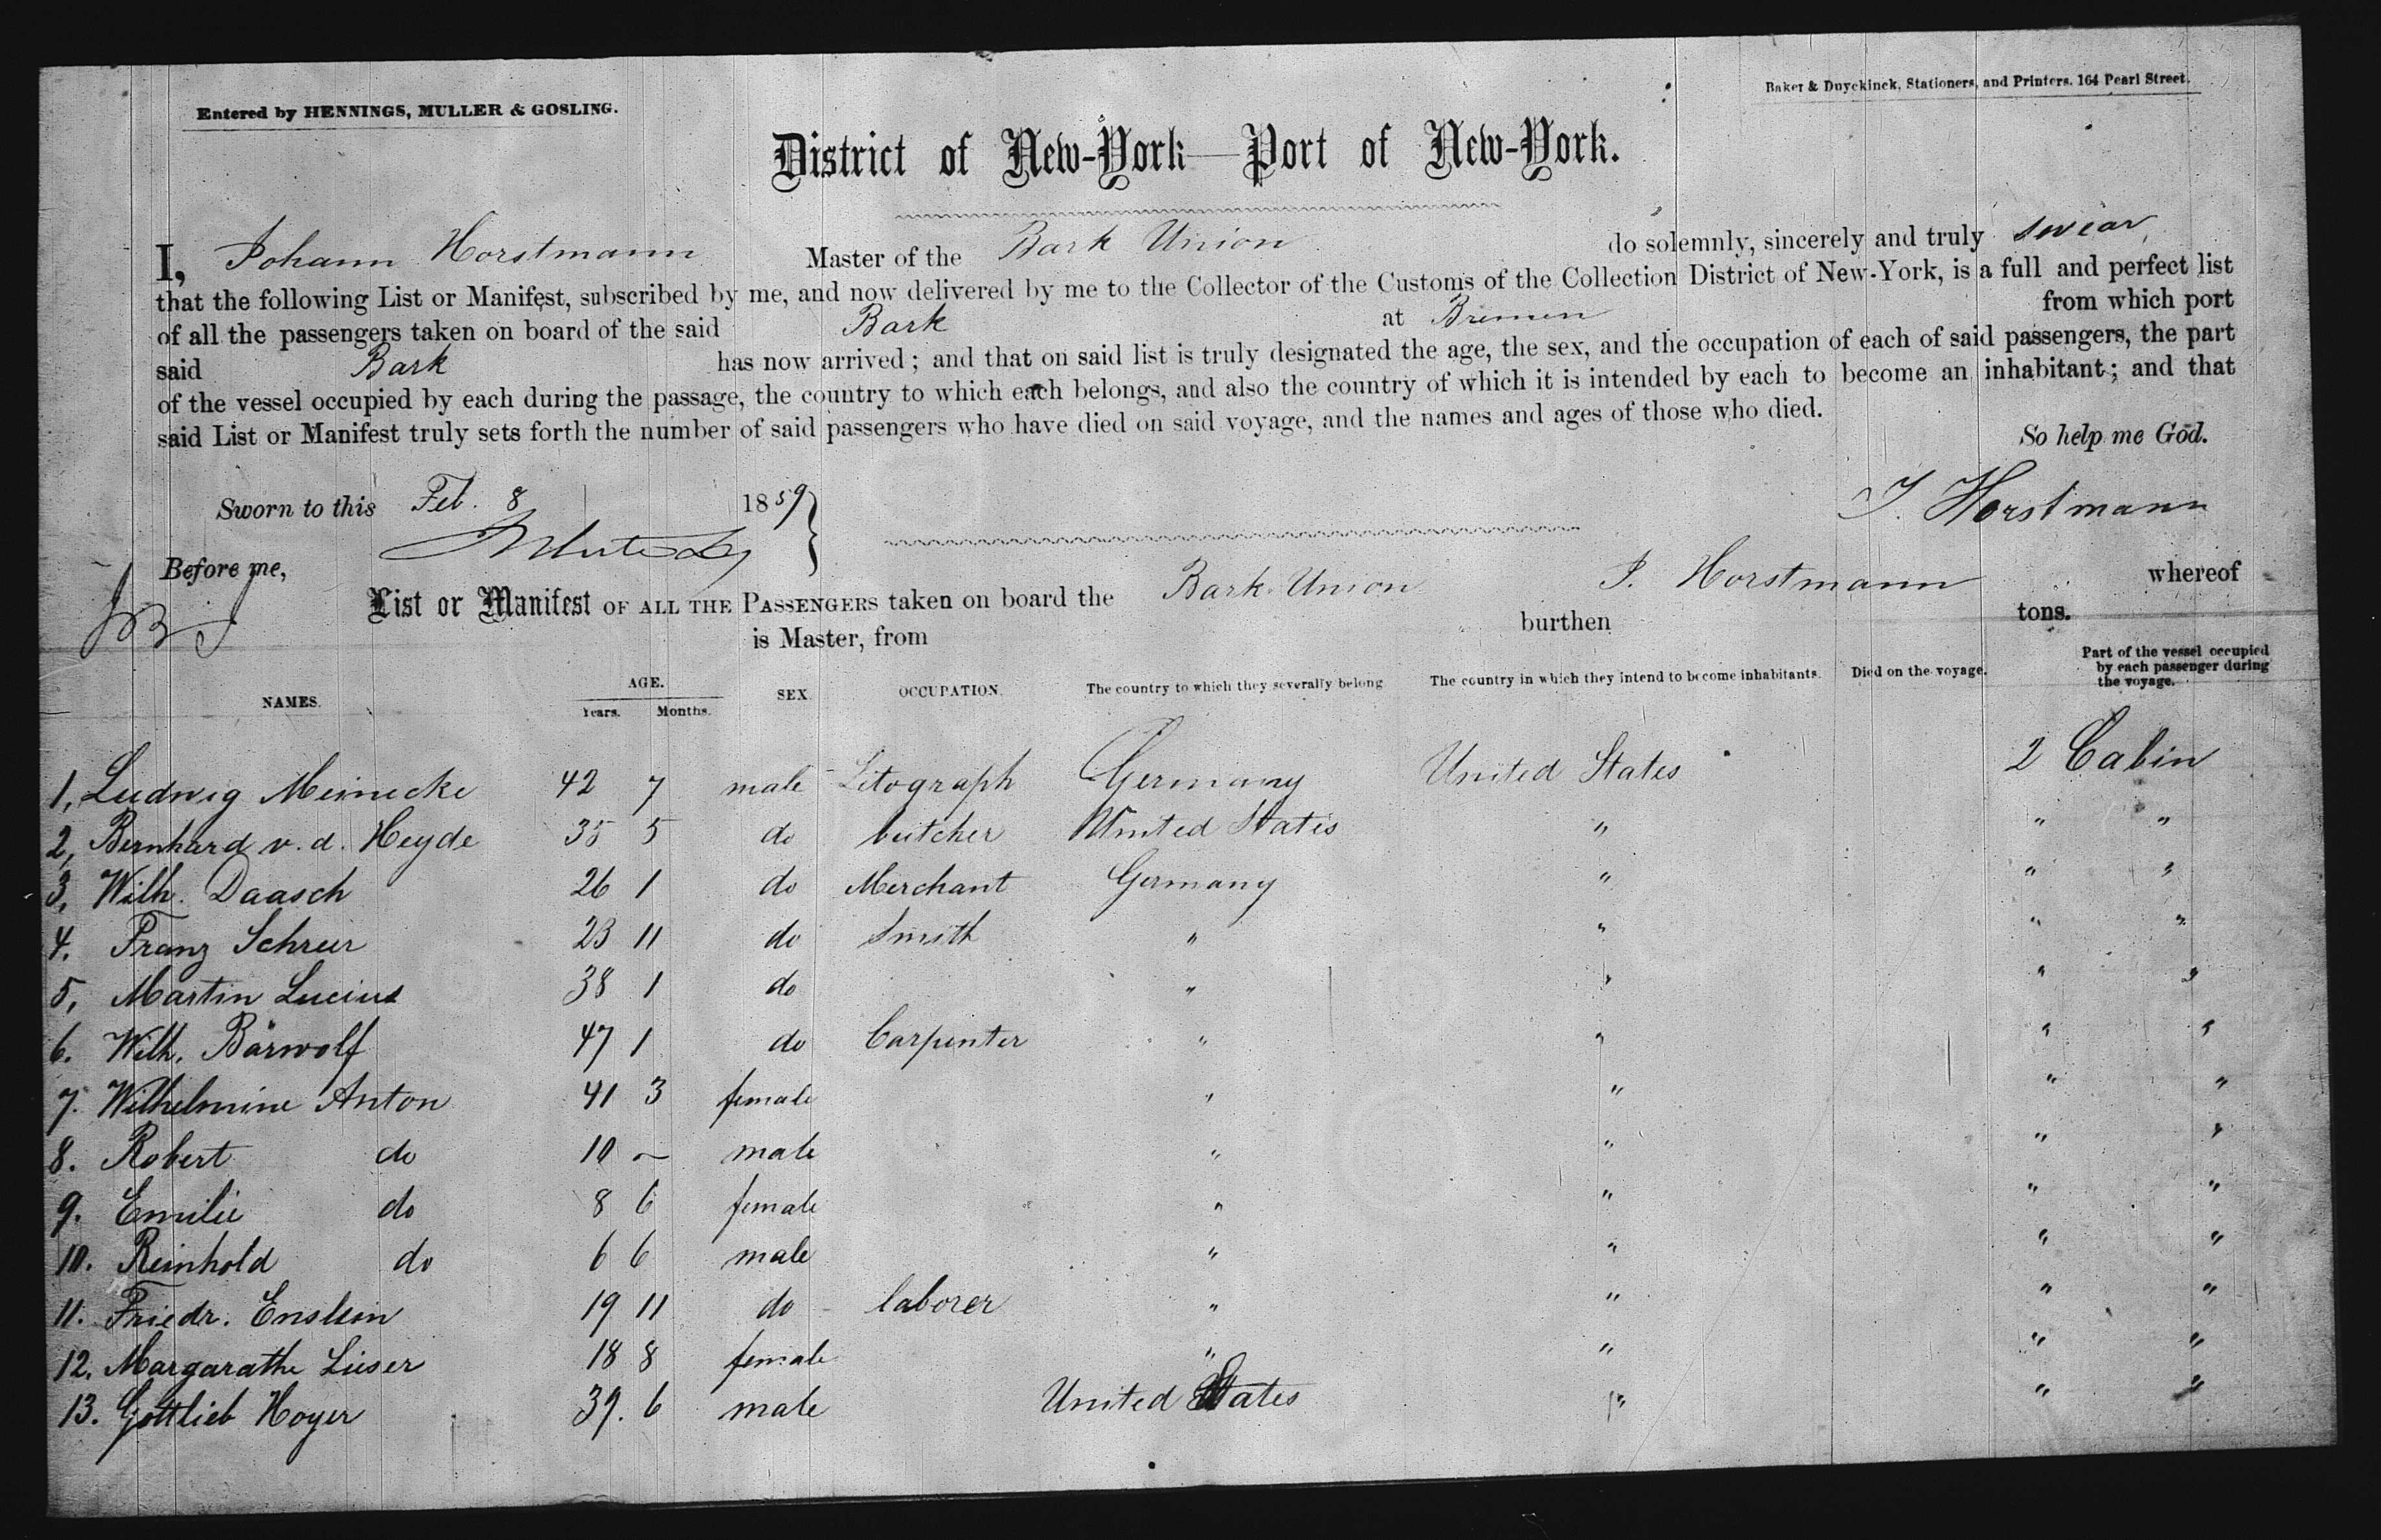 Entered by HENNINGS, MULLER & GOSLING.
Baker & Duyckinck, Stationers, and Printers. 164 Pearl Street.
District of New-York—Port of New-York.
I, Johann Horstmann Master of the Bark Union do solemnly, sincerely and truly swear,
that the following List or Manifest, subscribed by me, and now delivered by me to the Collector of the Customs of the Collection District of New-York, is a full and perfect list
of all the passengers taken on board of the said Bark at Bremen from which port
said Bark has now arrived; and that on said list is truly designated the age, the sex, and the occupation of each of said passengers, the part
of the vessel occupied by each during the passage, the country to which each belongs, and also the country of which it is intended by each to become an inhabitant; and that
said List or Manifest truly sets forth the number of said passengers who have died on said voyage, and the names and ages of those who died.
So help me God.
Sworn to this Feb. 8 1859
J. Horstmann
Before me,
List or Manifest OF ALL THE PASSENGERS taken on board the Bark Union J. Horstmann whereof
is Master, from burthen tons.
NAMES. AGE. Years. Months. SEX. OCCUPATION. The country to which they severally belong The country in which they intend to become inhabitants. Died on the voyage. Part of the vessel occupied by each passenger during the voyage.
1, Ludwig Meinecke 42 7 male Litograph Germany United States 2 Cabin
2, Bernhard v. d. Heyde 35 5 do butcher United States " " "
3, Wilh. Daasch 26 1 do Merchant Germany " " "
4. Franz Schreir 23 11 do Smith " " " "
5, Martin Lucius 38 1 do " " " "
6. Wilh. Bärwolf 47 1 do Carpenter " " " "
7. Wilhelmine Anton 41 3 female " " " "
8. Robert do 10 ~ male " " " "
9. Emilie do 8 6 female " " " "
10. Reinhold do 6 6 male " " " "
11. Friedr. Enslein 19 11 do laborer " " " "
12. Margarathe Lieser 18 8 female " " " "
13. Gottlieb Hoyer 39. 6 male United States " " "